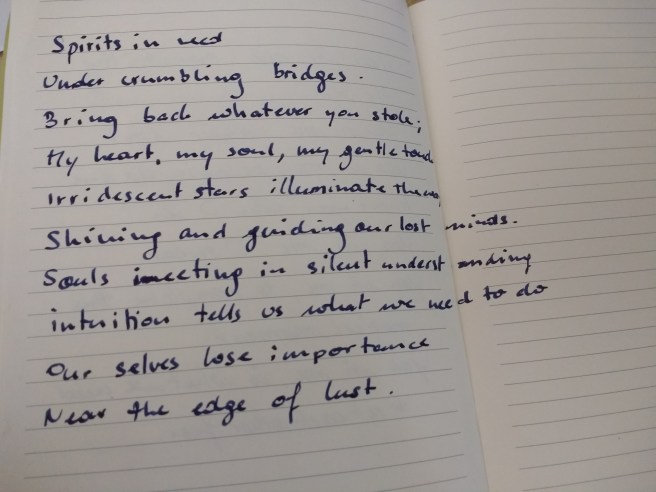 Spirits in need
Under crumbling bridges.
Bring back whatever you stole;
My heart, my soul, my gentle touch
Irridescent stars illuminate the way
Shining and guiding our lost minds.
Souls meeting in silent understanding
intuition tells us what we need to do
Our selves lose importance
Near the edge of lust.